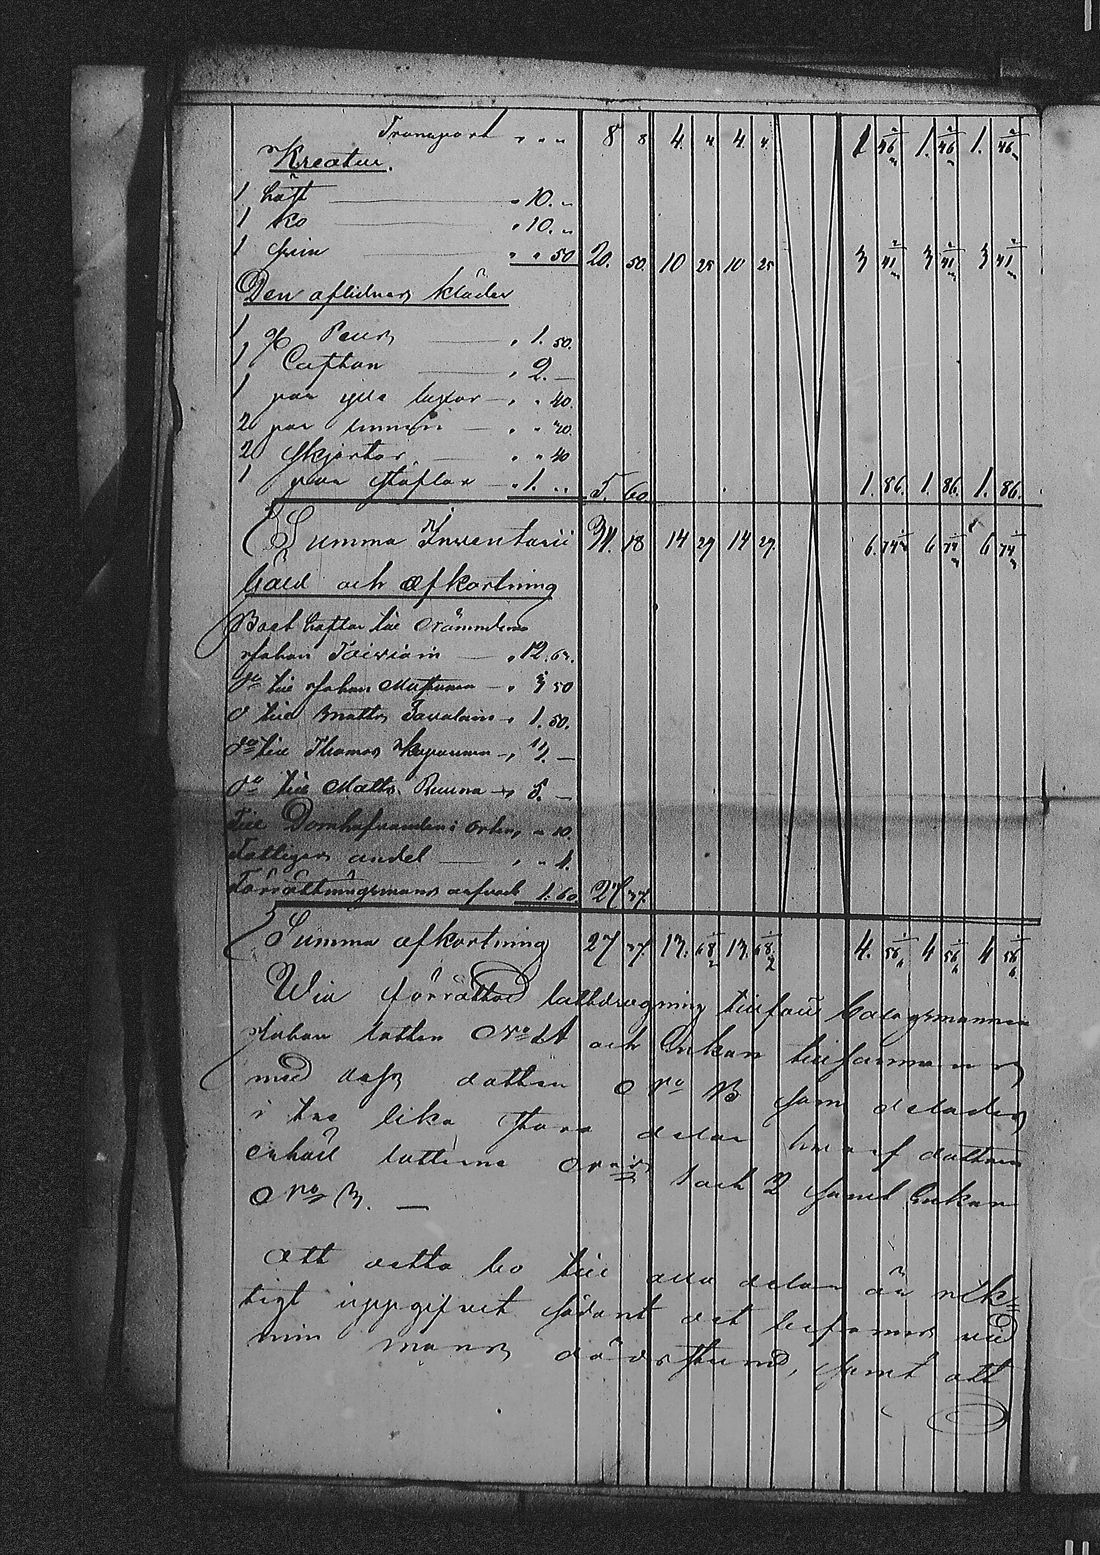 Transport " " " 8 8 4 4 4 4 1 1. 1.
Kreatur.
1 häst " 10. "
1 ko " 10. "
1 svin " " 50 20. 50. 10 25 10 25 3 41 3 41 3 41
Den aflidnes kläder
1 st Peus " 1. 50.
1 Caftan " 2. —
1 par ylle byxor " " 40.
2 par linne " " 20.
2 skjortor " " 40
1 par stöflor " 1. " 5. 60 1. 86. 1. 86. 1. 86.
Summa Inventarii 34. 18 14 29 14 29. 6. 74 6 74 6 74
Gäld och afkortning
Johan " 12.
do till Johan " 3 50
do till Matts " 1. 50.
do till Thomas " 2. —
do till Matts Ruuna " 5. —
Till " " 10.
Fattiges andel " " 4.
Förrättningsmans arfvode 1. 60 27 37.
Summa afkortning 27 37. 13. 68 13. 68 4. 56 4 56 4 56
Vid förrättad lottdragning tillföll bolagsmannen
Johan lotten No A och Enkan tillsammans
med dess dotter No B som delades
i tre lika stora delar hvaraf dottren
erhöll lotterne Nris 1 och 2 samt Enkan
No 3. —
Att detta bo till alla delar är rik-
tigt uppgifvet sådant det befanns vid
min mans dödsstund, samt att